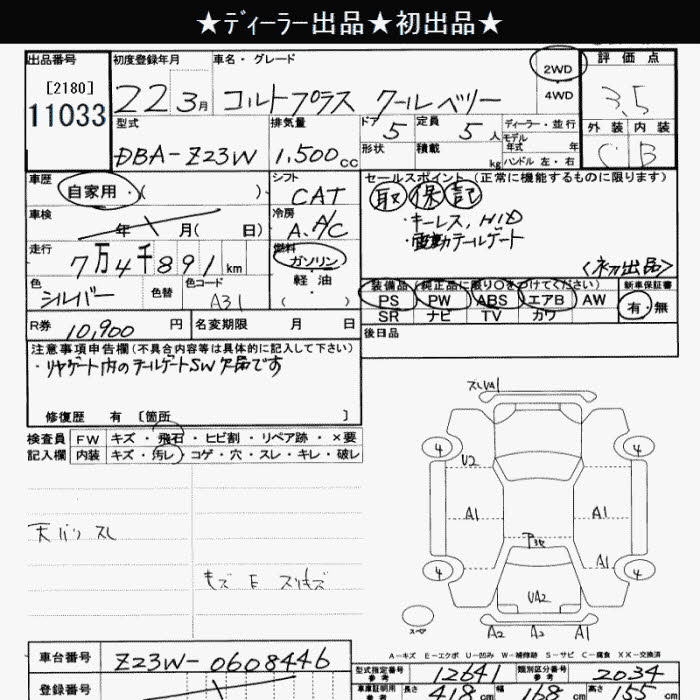 ★ディーラー出品★初出品★
出品番号 [2180] 11033
初度登録年月 22 3月
車名・グレード コルトプラス クールベリー
2WD
4WD
評価点 3.5
外装 内装
C B
型式 DBA-Z23W
排気量 1,500cc
ドア 5
形状
定員 5人
積載 kg
ディーラー・並行
モデル年式 年
ハンドル 左・右
車歴 自家用・( )
シフト CAT
車検 年 月( 日)
冷房 A/C
走行 7万4千891km
燃料 ガソリン・軽油・( )
色 シルバー
色替
色コード A31
R券 10,900円
名変期限 月 日
セールスポイント(正常に機能するものに限ります)
取 保 記
・キーレス, HID
・電動テールゲート
<初出品>
装備品(純正品に限り○をつけてください)
PS PW ABS エアB AW
SR ナビ TV カワ
新車保証書
有・無
後日品
注意事項申告欄(不具合内容等は具体的に記入して下さい)
・リヤゲート内のテールゲートSW欠品です
修復歴 有 [箇所 ]
検査員記入欄
FW キズ・飛石・ヒビ割・リペア跡・×要
内装 キズ・汚レ・コゲ・穴・スレ・キレ・破レ
天バリ スレ
キズ E スリキズ
スレVA1
4 4
U2
A1 A1
A1
4 4
UA2
スペア
A2 A2 A1
A-キズ E-エクボ U-凹み W-補修跡 S-サビ C-腐食 XX-交換済
車台番号 Z23W-0608446
登録番号
型式指定番号 参考 12641
類別区分番号 参考 2034
車庫証明用 参考 長さ 418cm 幅 168cm 高さ 155cm